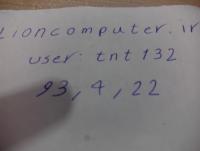 Lioncomputer.ir
user: tnt 132
93, 4, 22